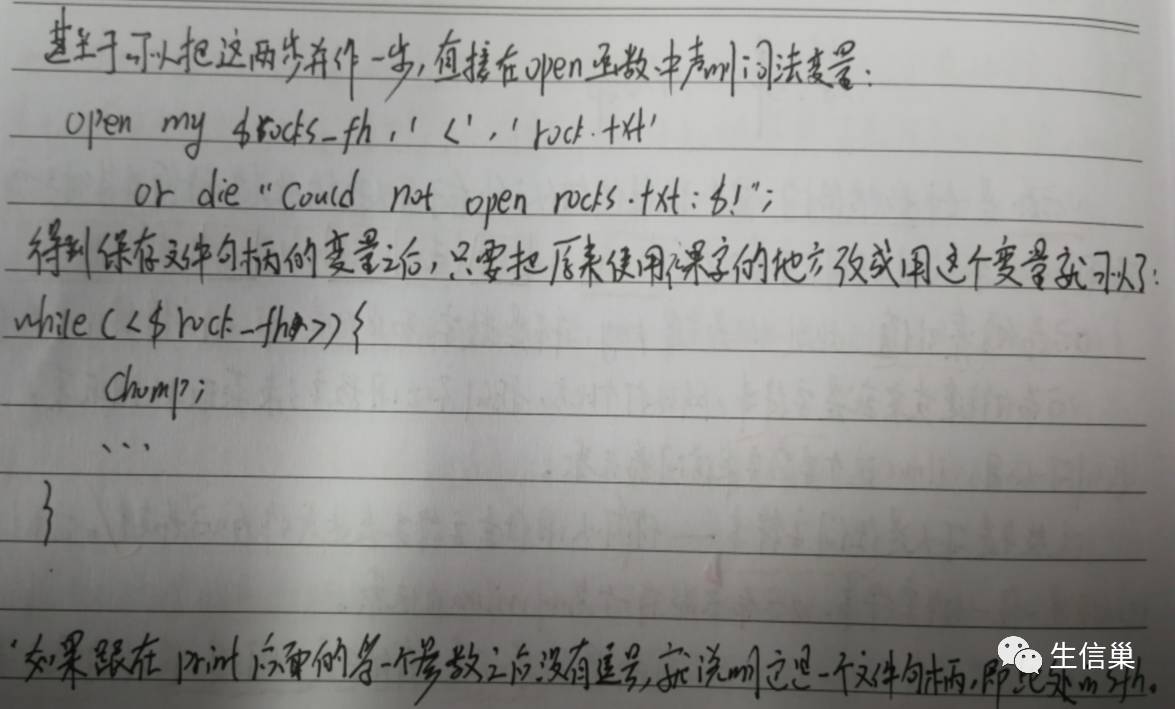 甚至于可以把这两步并作一步,直接在open函数中声明词法变量:
open my $rocks_fh,'<','rock.txt'
or die "Could not open rocks.txt:$!";
得到保存文件句柄的变量之后,只要把原来使用裸字的地方改成用这个变量就可以了:
while(<$rock_fh>){
Chomp;
...
}
·如果跟在print后面的第一个参数之后没有逗号,就说明这是一个文件句柄,即此处的$fh。
生信巢